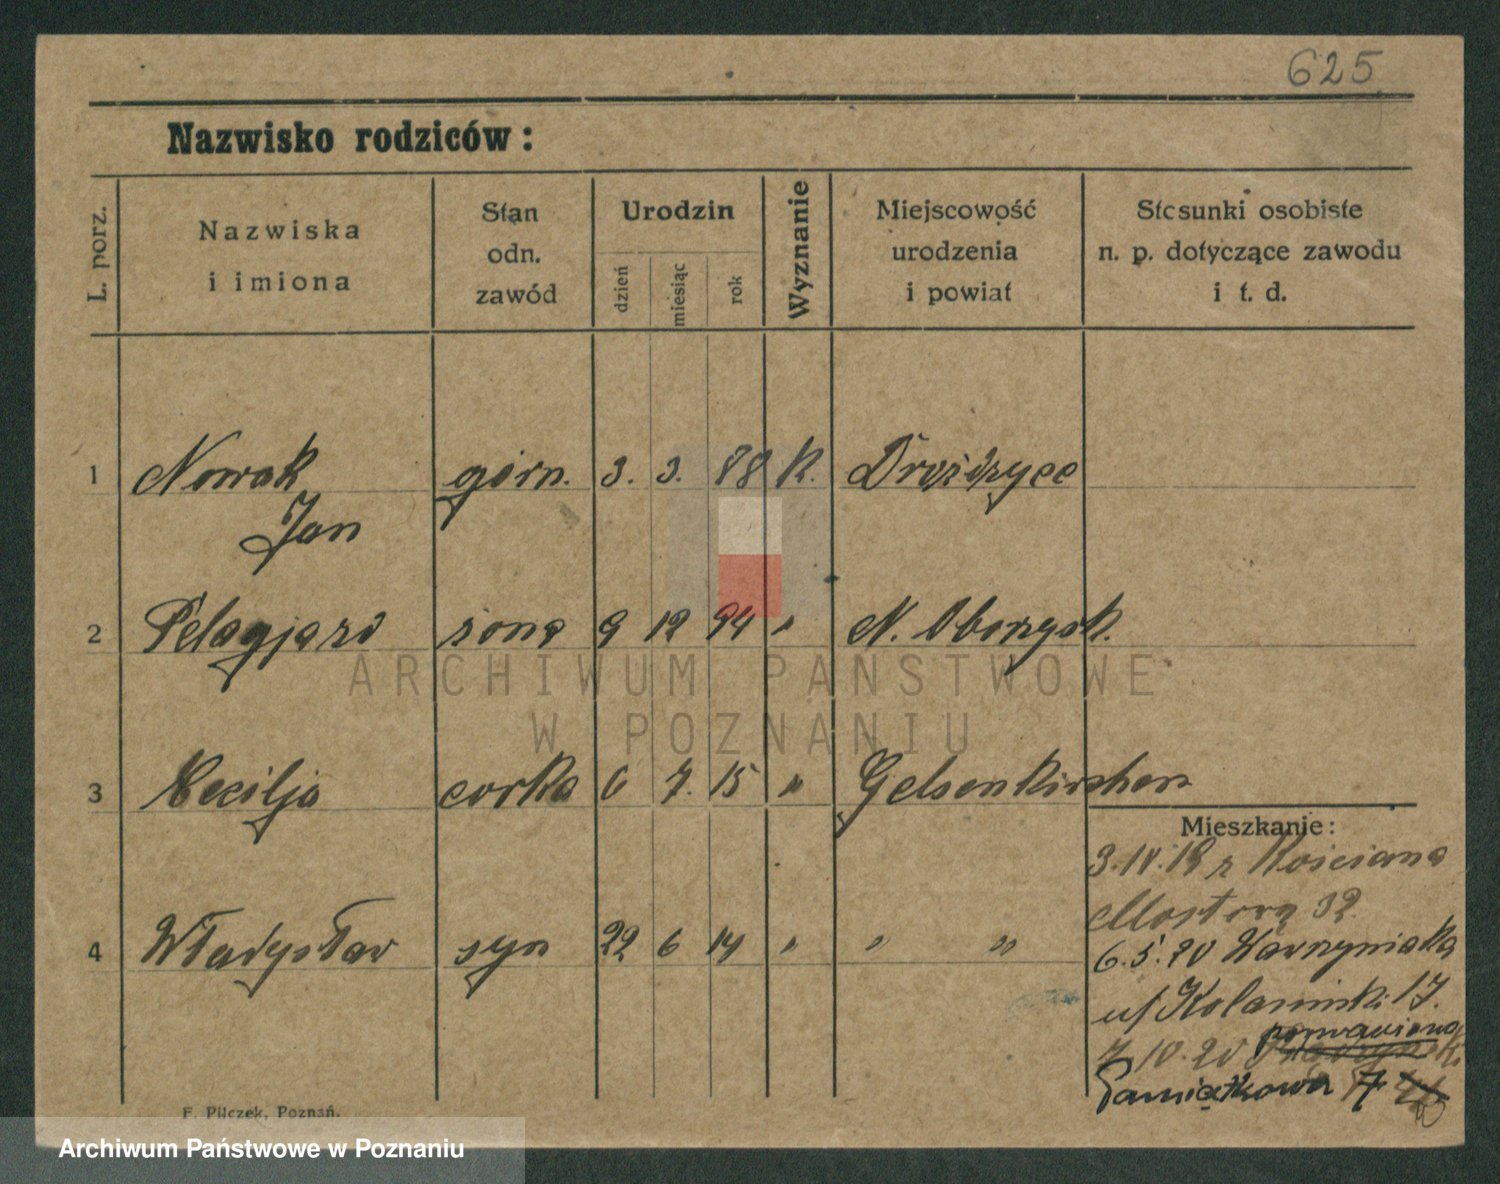 625
Nazwisko rodziców:
L. porz.
Nazwiska
i imiona
Stan
odn.
zawód
Urodzin
dzień
miesiąc
rok
Wyznanie
Miejscowość
urodzenia
i powiat
Stosunki osobiste
n. p. dotyczące zawodu
i t. d.
1 Nowak górn. 3. 3. 88 K. Drożdżyce
Jan
2 żona 9 12 94 " N. Oborzysk.
3 Cecilja corka 6 7. 15 " Gelsenkirchen
4 Władysław syn 22 6 14 " " "
Mieszkanie:
3.IV.19 z Kościana
Mostowa 32.
6.5.20 Warzyniaka
u/ Kolasinski 17.
7.10.20
Pamiątkowa 7
F. Pilczek, Poznań.
ARCHIWUM PAŃSTWOWE
W POZNANIU
Archiwum Państwowe w Poznaniu